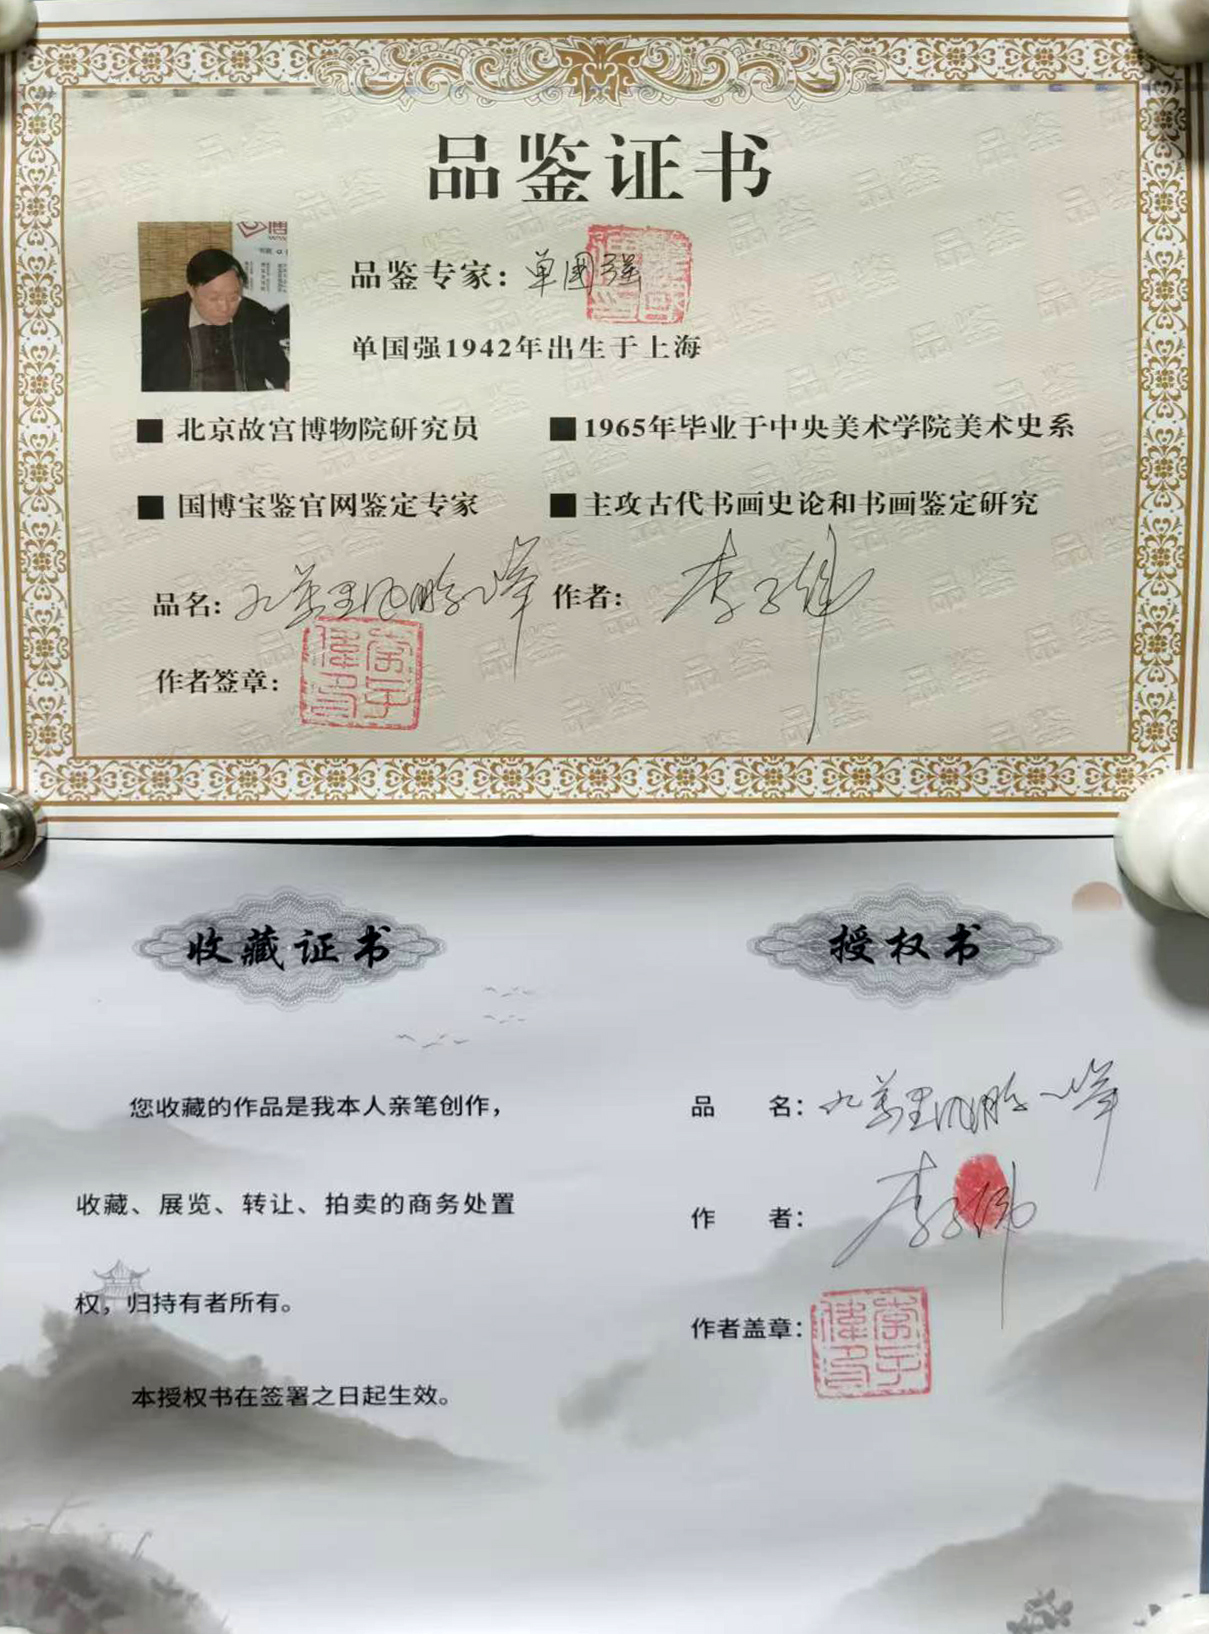 品鉴证书
品鉴专家: 单國强
单国强1942年出生于上海
■ 北京故宫博物院研究员
■1965年毕业于中央美术学院美术史系
■ 国博宝鉴官网鉴定专家
■主攻古代书画史论和书画鉴定研究
品名: 九万里风鹏 作者: 李
作者签章:
收藏证书
您收藏的作品是我本人亲笔创作，
收藏、展览、转让、拍卖的商务处置
权，归持有者所有。
本授权书在签署之日起生效。
授权书
品 名: 九万里风鹏
作 者: 李
作者盖章: